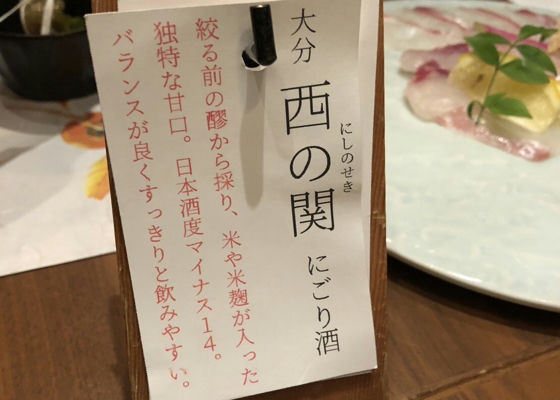 大分
西の関 にごり酒
にしのせき
絞る前の醪から採り、米や米麹が入った
独特な甘口。日本酒度マイナス14。
バランスが良くすっきりと飲みやすい。